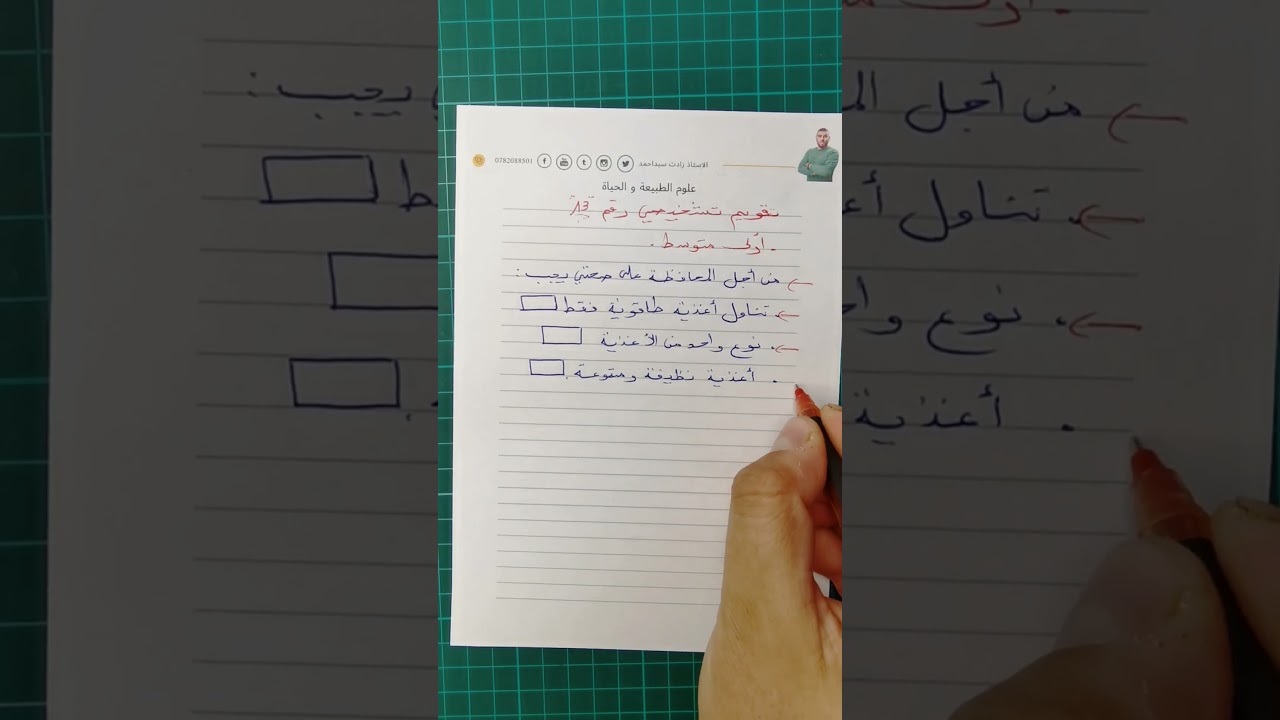 الاستاذ زادت سيداحمد 0782088501
علوم الطبيعة و الحياة
تقويم تشخيصي رقم 13
أولى متوسط.
من أجل المحافظة على صحتي يجب:
. تناول أغذية طاقوية فقط
. نوع واحد من الأغذية
. أغذية نظيفة ومتنوعة.